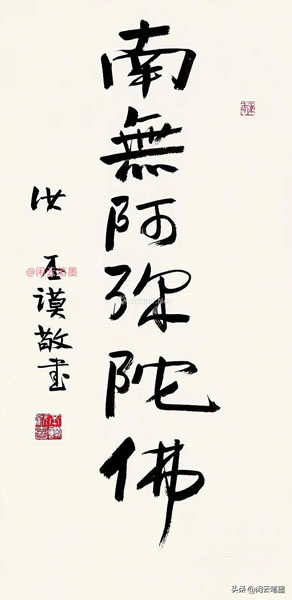 南無阿弥陀佛
洪丕谟敬書
@闲云笔墨
头条 @闲云笔墨